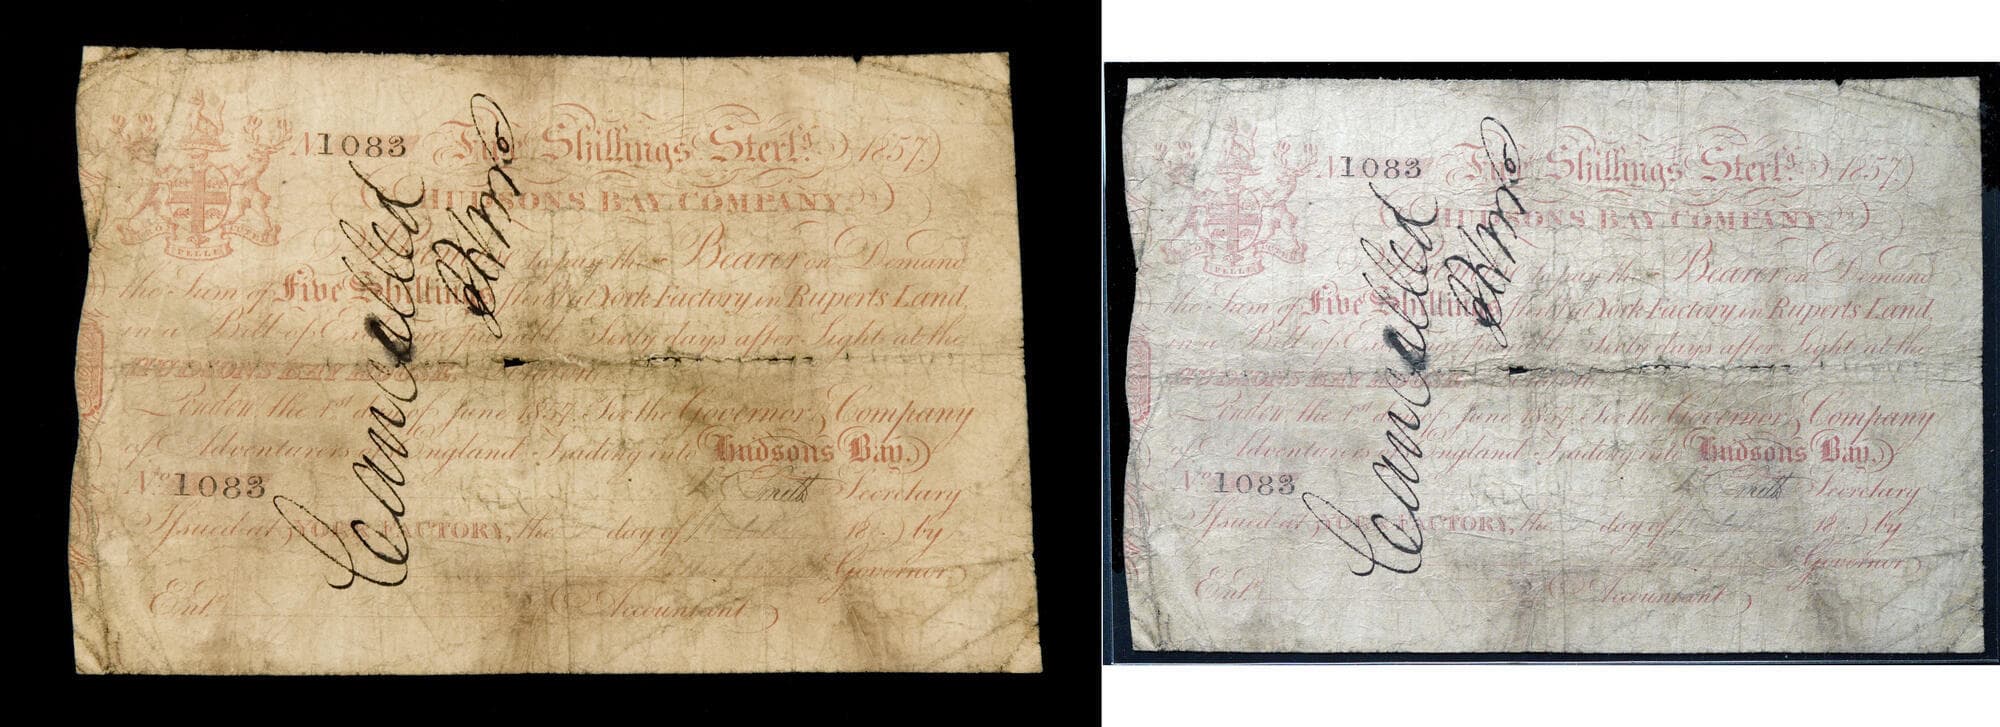 No 1083 Five Shillings Sterlg. 1857.
HUDSONS BAY COMPANY.
to pay the Bearer on Demand
the Sum of Five Shillings Sterlg at York Factory in Ruperts Land
in a Bill of Exchange payable Sixty days after Sight at the
HUDSONS BAY HOUSE, London
London, the 1st day of June 1857. For the Governor & Company
of Adventurers of England Trading into Hudsons Bay.
No 1083
Smith Secretary
Issued at YORK FACTORY, the day of 18 by
Governor
Entd. Accountant
PRO PELLE CUTEM
Cancelled
No 1083 Five Shillings Sterlg. 1857.
HUDSONS BAY COMPANY.
to pay the Bearer on Demand
the Sum of Five Shillings Sterlg at York Factory in Ruperts Land
in a Bill of Exchange payable Sixty days after Sight at the
HUDSONS BAY HOUSE, London
London, the 1st day of June 1857. For the Governor & Company
of Adventurers of England Trading into Hudsons Bay.
No 1083
Smith Secretary
Issued at YORK FACTORY, the day of 18 by
Governor
Entd. Accountant
PRO PELLE CUTEM
Cancelled